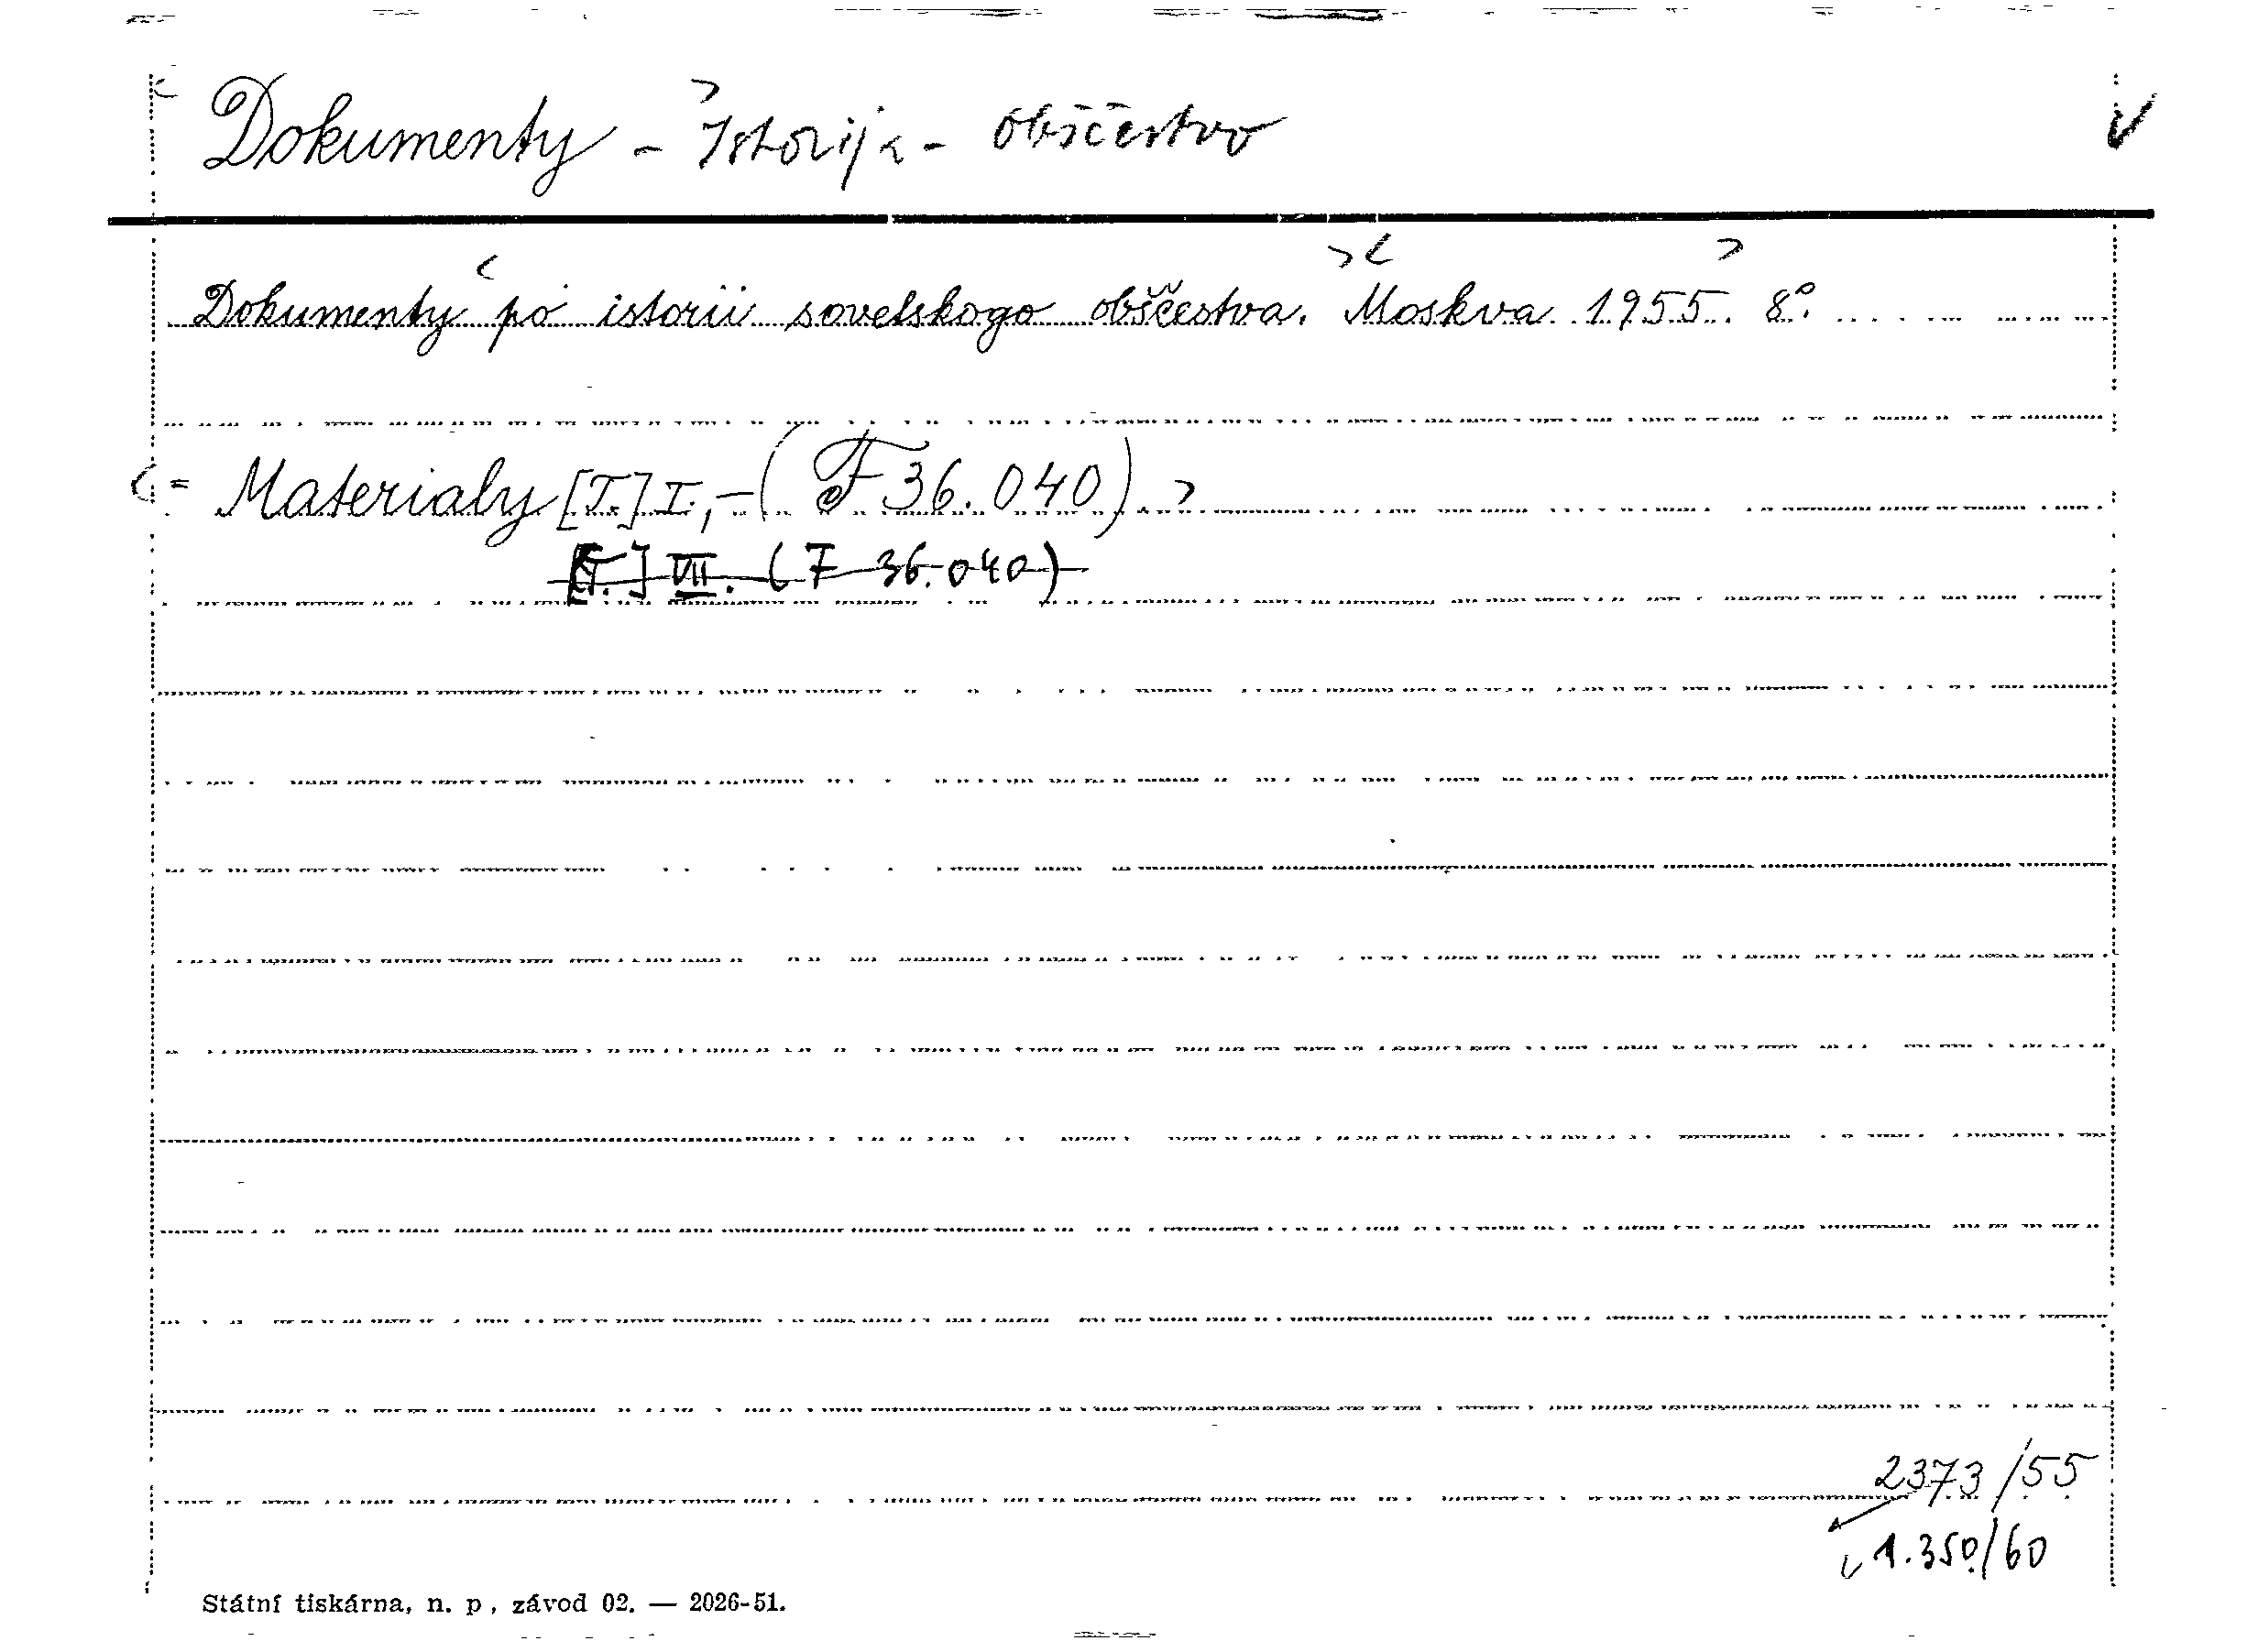 Dokumenty - Istorija - obščestvo
Dokumenty po istorii sovetskogo obščestva. Moskva 1955. 8°.
= Materialy [T.] I, - (F 36.040)
[T.] VII. (F 36.040)
2373/55
1.350/60
Státní tiskárna, n. p., závod 02. — 2026-51.